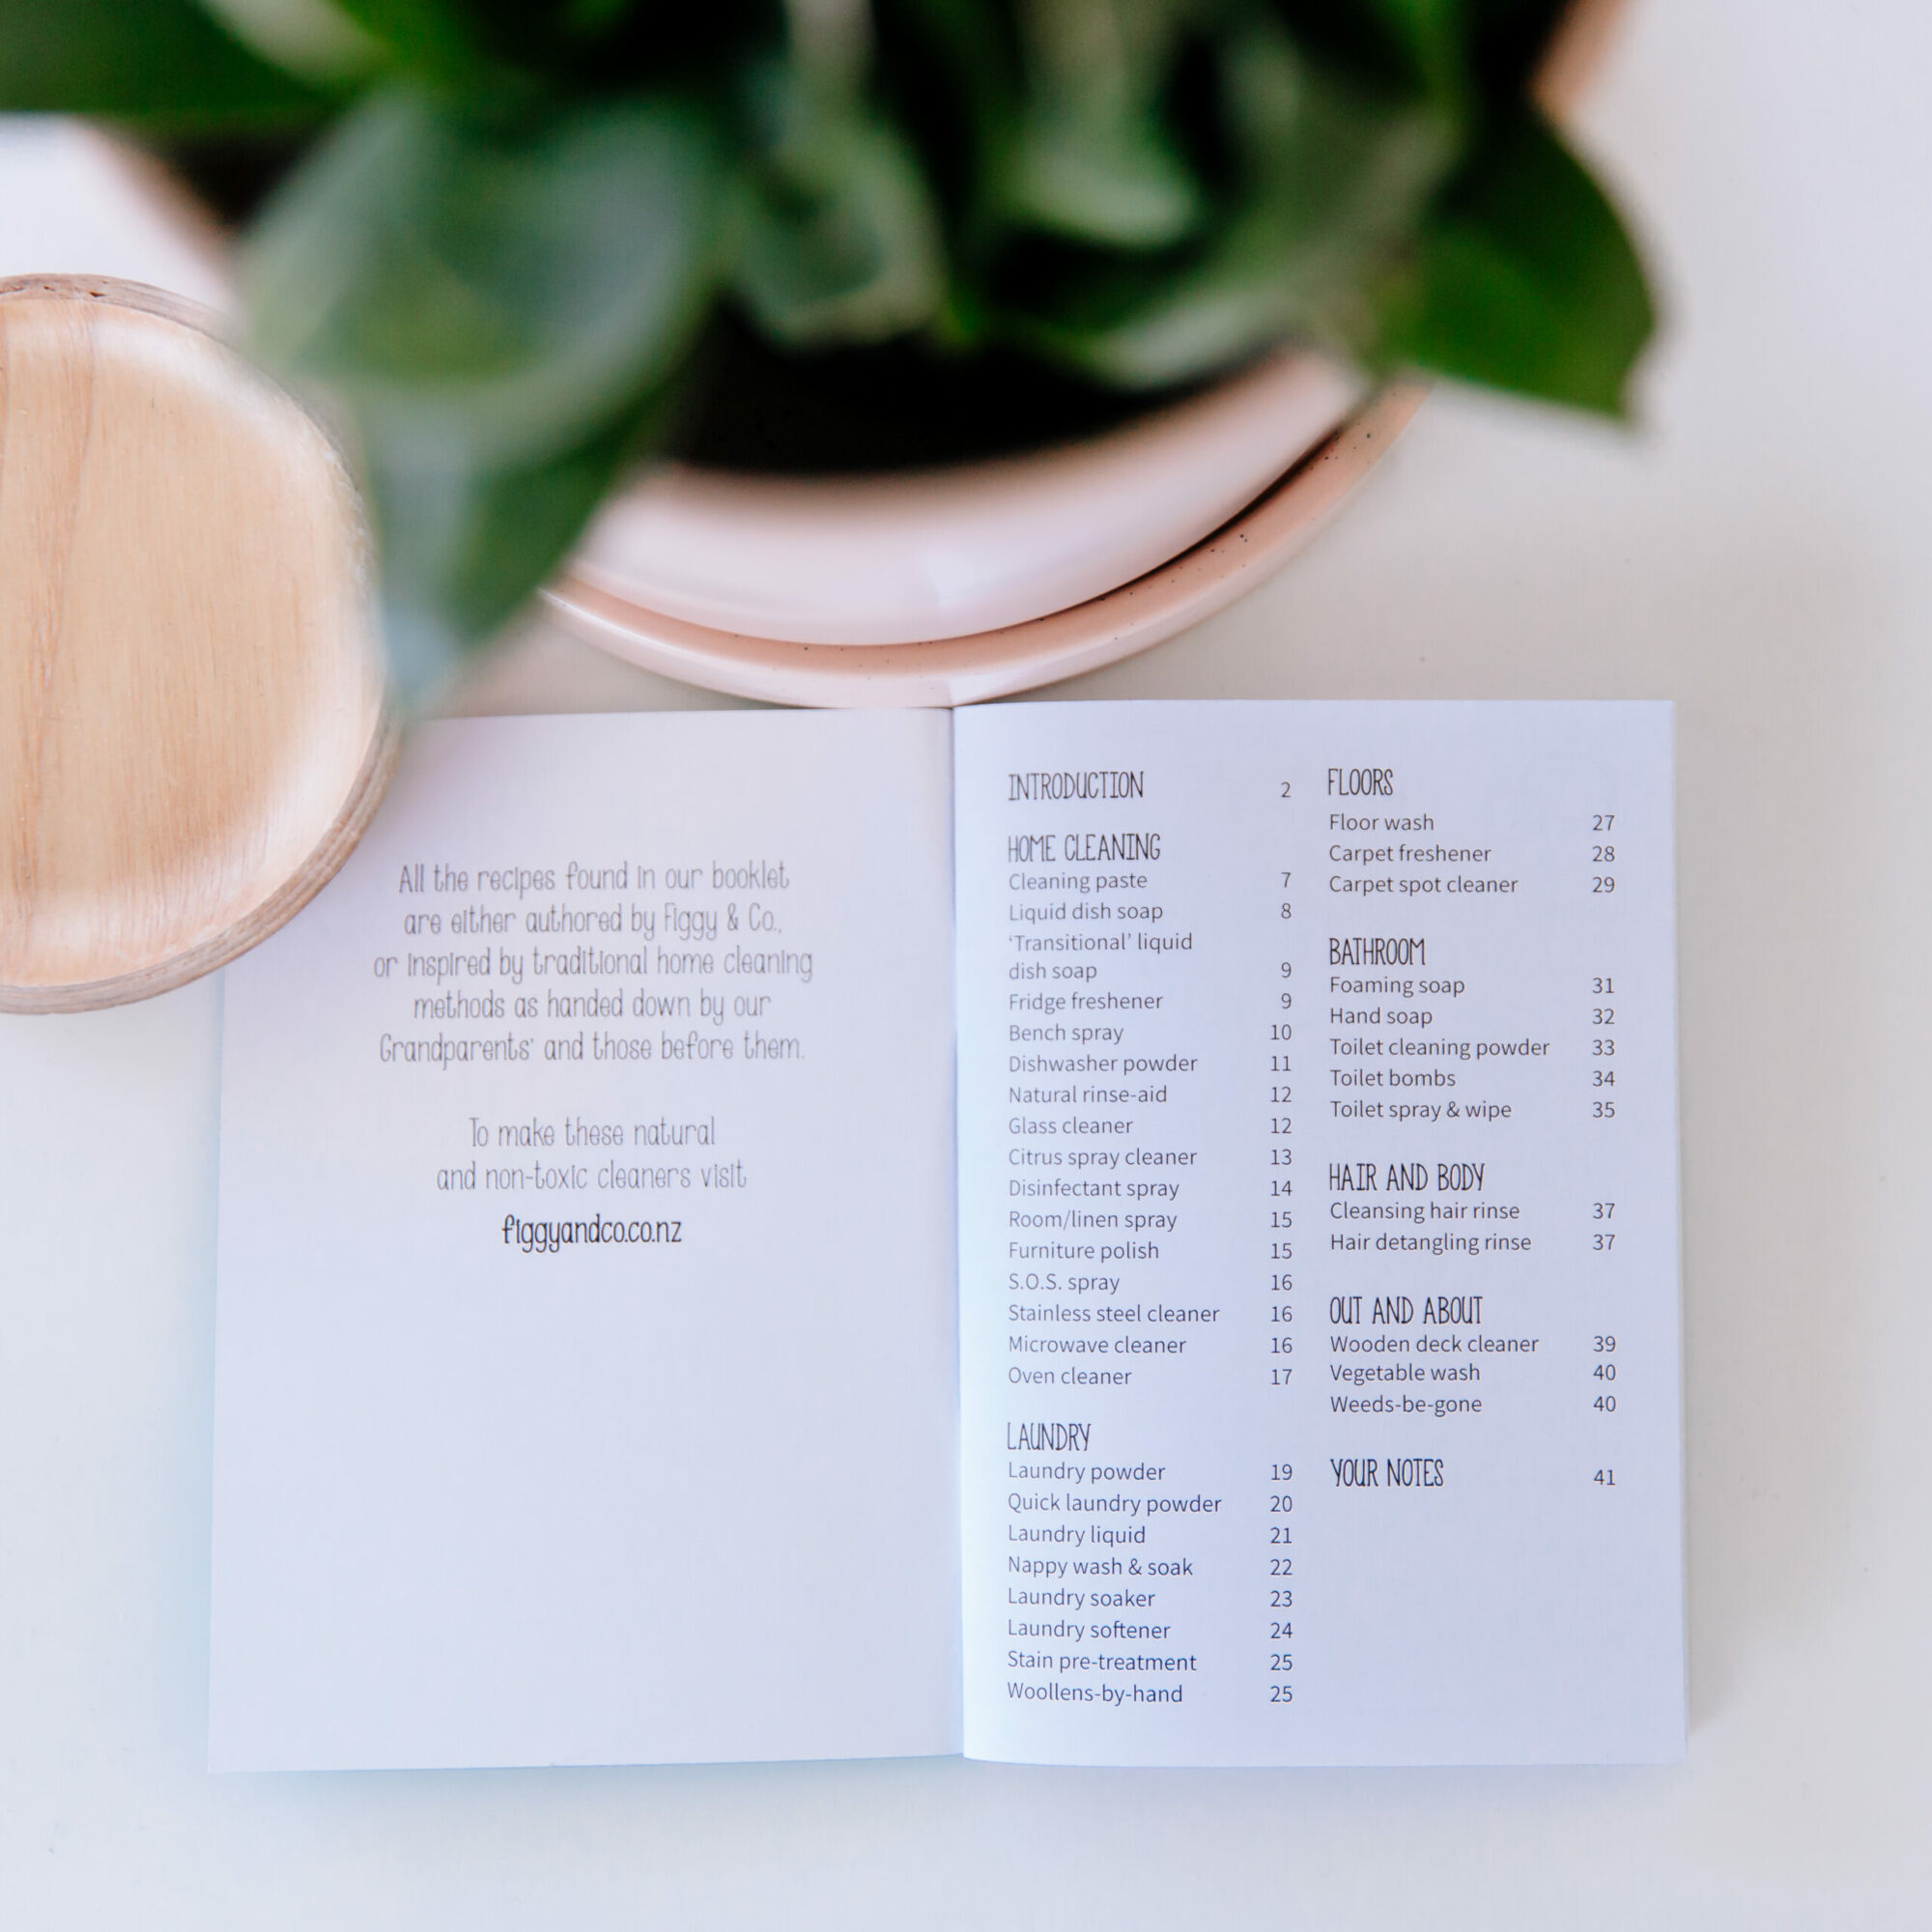 All the recipes found in our booklet
are either authored by Figgy & Co.,
or inspired by traditional home cleaning
methods as handed down by our
Grandparents' and those before them.
To make these natural
and non-toxic cleaners visit
figgyandco.co.nz
INTRODUCTION 2
HOME CLEANING
Cleaning paste 7
Liquid dish soap 8
‘Transitional’ liquid
dish soap 9
Fridge freshener 9
Bench spray 10
Dishwasher powder 11
Natural rinse-aid 12
Glass cleaner 12
Citrus spray cleaner 13
Disinfectant spray 14
Room/linen spray 15
Furniture polish 15
S.O.S. spray 16
Stainless steel cleaner 16
Microwave cleaner 16
Oven cleaner 17
LAUNDRY
Laundry powder 19
Quick laundry powder 20
Laundry liquid 21
Nappy wash & soak 22
Laundry soaker 23
Laundry softener 24
Stain pre-treatment 25
Woollens-by-hand 25
FLOORS
Floor wash 27
Carpet freshener 28
Carpet spot cleaner 29
BATHROOM
Foaming soap 31
Hand soap 32
Toilet cleaning powder 33
Toilet bombs 34
Toilet spray & wipe 35
HAIR AND BODY
Cleansing hair rinse 37
Hair detangling rinse 37
OUT AND ABOUT
Wooden deck cleaner 39
Vegetable wash 40
Weeds-be-gone 40
YOUR NOTES 41